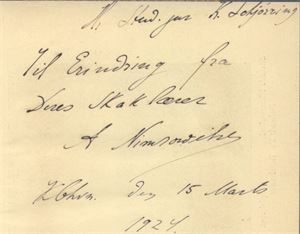 Hr. Stud. jur K. Schjörring
Til Erindring fra
Deres Skaklærer
A Nimzowitsch
Kbhvn. den 15 Marts
1924.